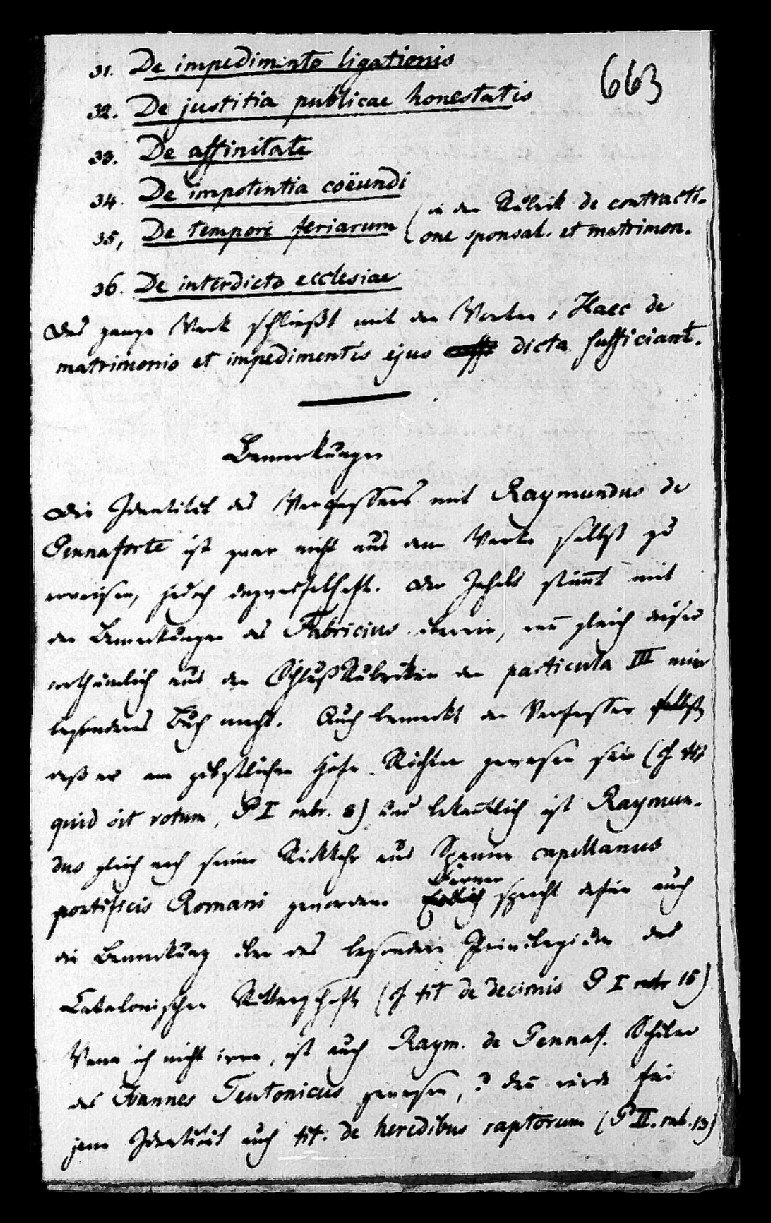 663
31. De impedimento ligationis
32. De justitia publicae honestatis
33. De affinitate
34. De impotentia coëundi
35, De tempore feriarum (in der Rubrik de contracti-
one sponsal. et matrimon.
36. De interdicto ecclesiae
Das ganze Werk schließt mit den Worten, Haec de
matrimonio et impedimentis ejus dicta sufficiant.
Bemerkungen
Die Identität des Verfassers mit Raymundus de
Pennaforte ist zwar nicht aus dem Werke selbst zu
erweisen, jedoch Der Inhalt stimmt mit
den Bemerkungen des Fabricius überein, wenn gleich dieser
irrthümlich aus den Schlußrubriken der particula III ein
besonderes Buch macht. Auch bemerkt der Verfasser selbst,
daß er am päbstlichen Hofe Richter gewesen sei (cf tit
quid sit votum, P I rubr. 8) und bekanntlich ist Raymun-
dus gleich nach seiner Rückkehr aus Spanien capellanus
pontificis Romani geworden. Ferner spricht dafür auch
die Bemerkung über das besondere Privilegium der
Catalonischen Ritterschaft (cf tit de decimis P I rubr 15)
Wenn ich nicht irre, ist auch Raym. de Pennaf. Schüler
des Joannes Teutonicus gewesen, ? dann würde für
jene Identität auch tit. de heredibus raptorum (P II. rub. 13)